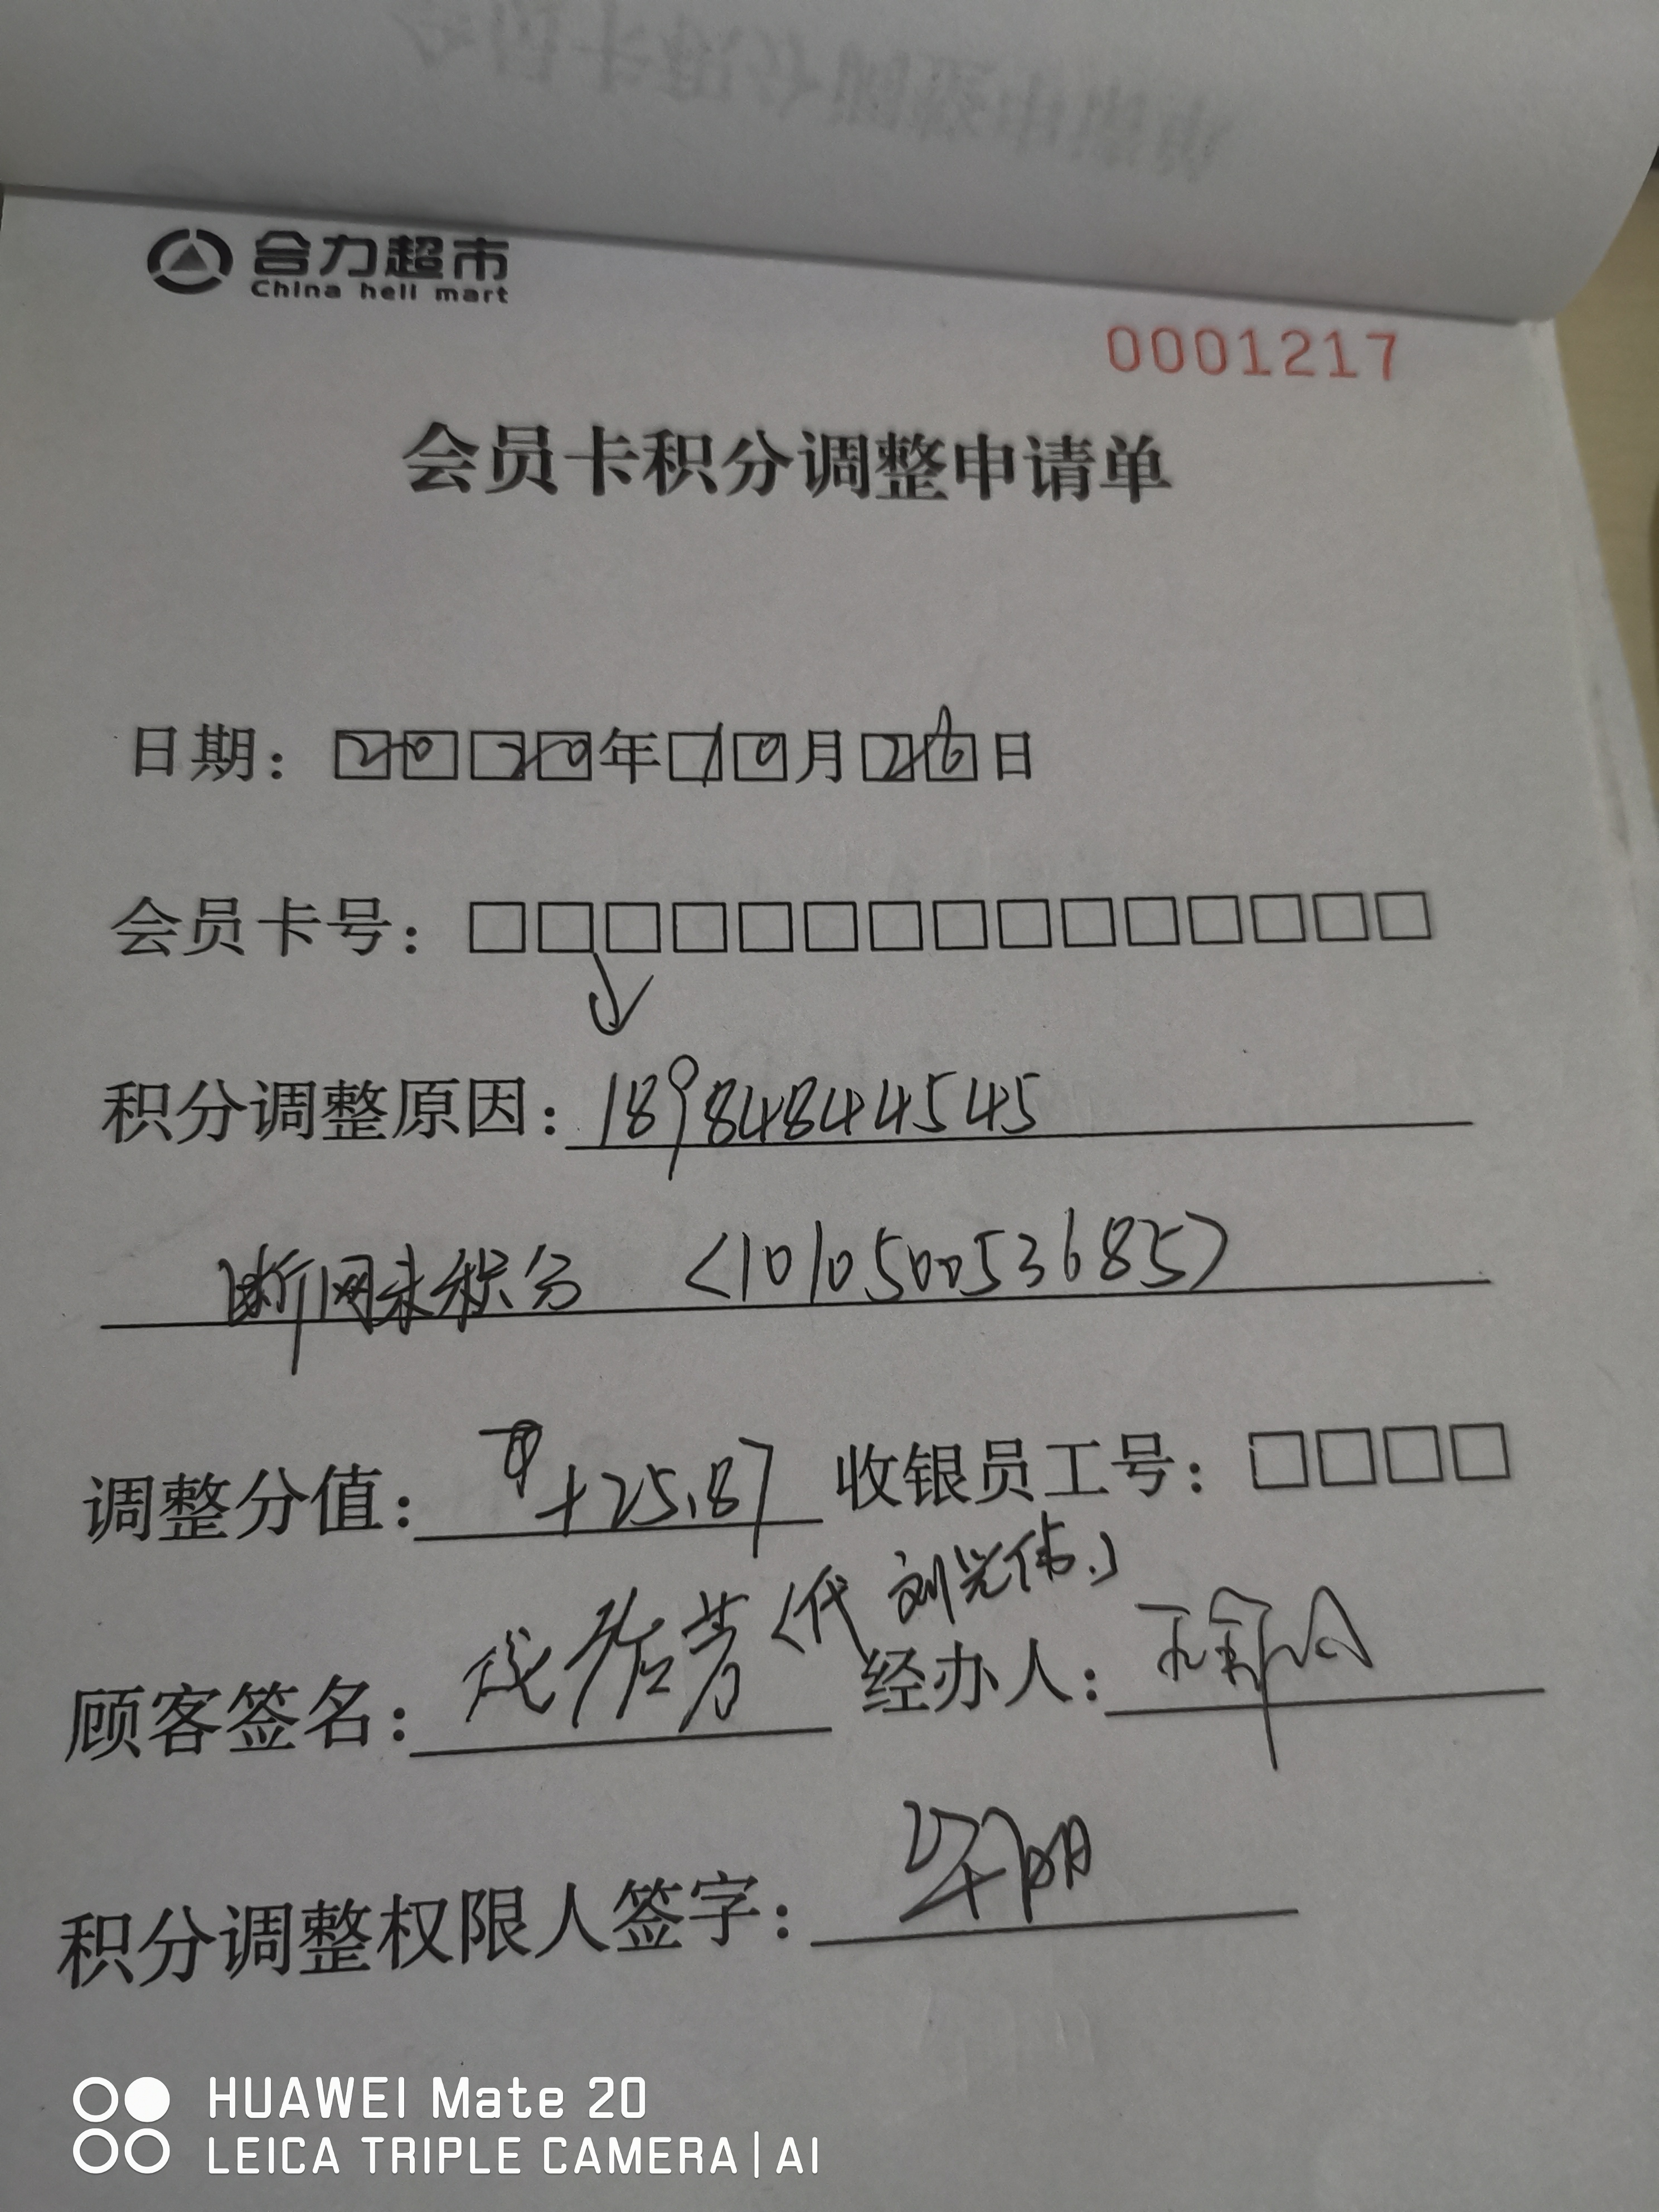 合力超市
China heli mart
0001217
会员卡积分调整申请单
日期：2020年10月26日
会员卡号：
积分调整原因：18984844545
断网未积分 <101050053685>
调整分值：+25.87 收银员工号：
<代 刘光伟.>
顾客签名： 经办人：
积分调整权限人签字：
HUAWEI Mate 20
LEICA TRIPLE CAMERA | AI